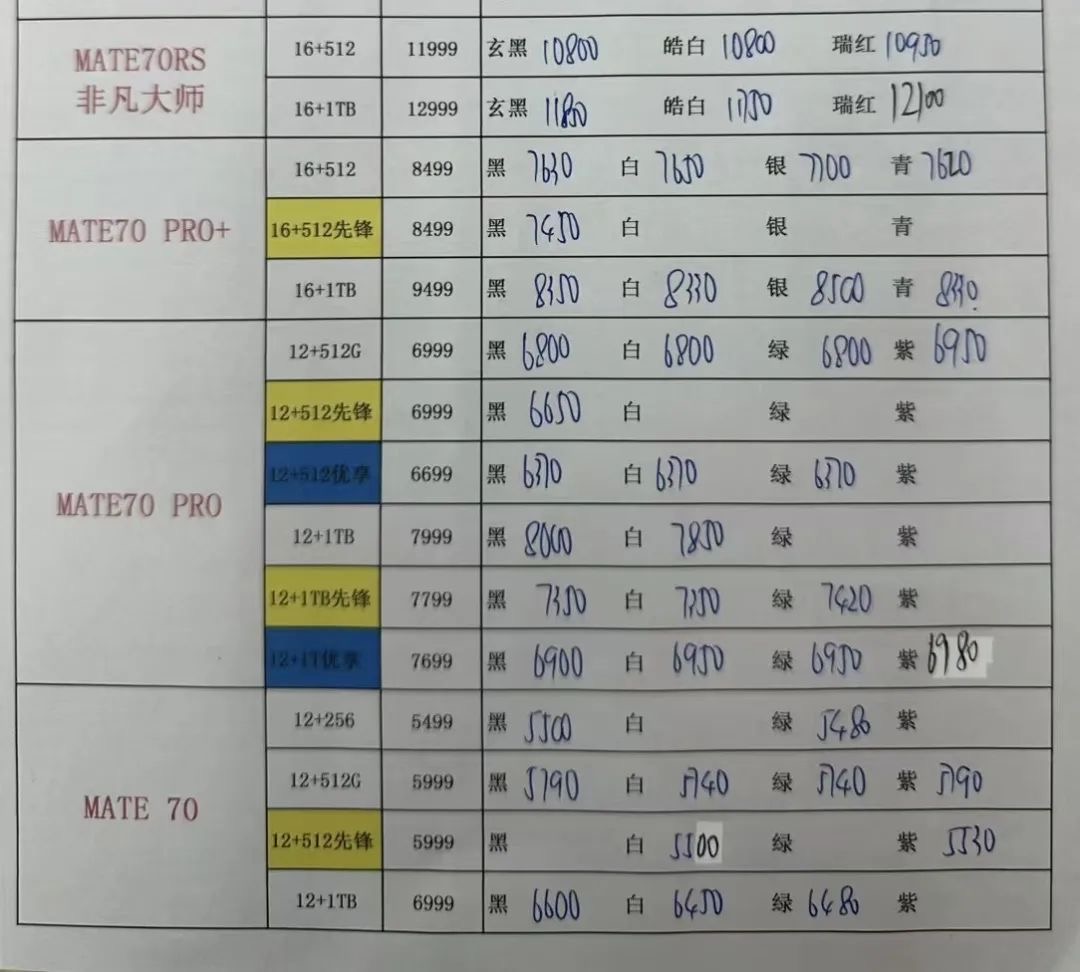 MATE70RS
非凡大师
16+512 11999 玄黑 10800 皓白 10800 瑞红 10950
16+1TB 12999 玄黑 11850 皓白 11750 瑞红 12100
MATE70 PRO+
16+512 8499 黑 7630 白 7650 银 7700 青 7620
16+512先锋 8499 黑 7450 白 银 青
16+1TB 9499 黑 8350 白 8330 银 8500 青 8330
MATE70 PRO
12+512G 6999 黑 6800 白 6800 绿 6800 紫 6950
12+512先锋 6999 黑 6650 白 绿 紫
12+512优享 6699 黑 6370 白 6370 绿 6370 紫
12+1TB 7999 黑 8000 白 7850 绿 紫
12+1TB先锋 7799 黑 7350 白 7350 绿 7420 紫
12+1T优享 7699 黑 6900 白 6950 绿 6950 紫 6980
MATE 70
12+256 5499 黑 5500 白 绿 5480 紫
12+512G 5999 黑 5790 白 5740 绿 5740 紫 5790
12+512先锋 5999 黑 白 5500 绿 紫 5530
12+1TB 6999 黑 6600 白 6450 绿 6480 紫